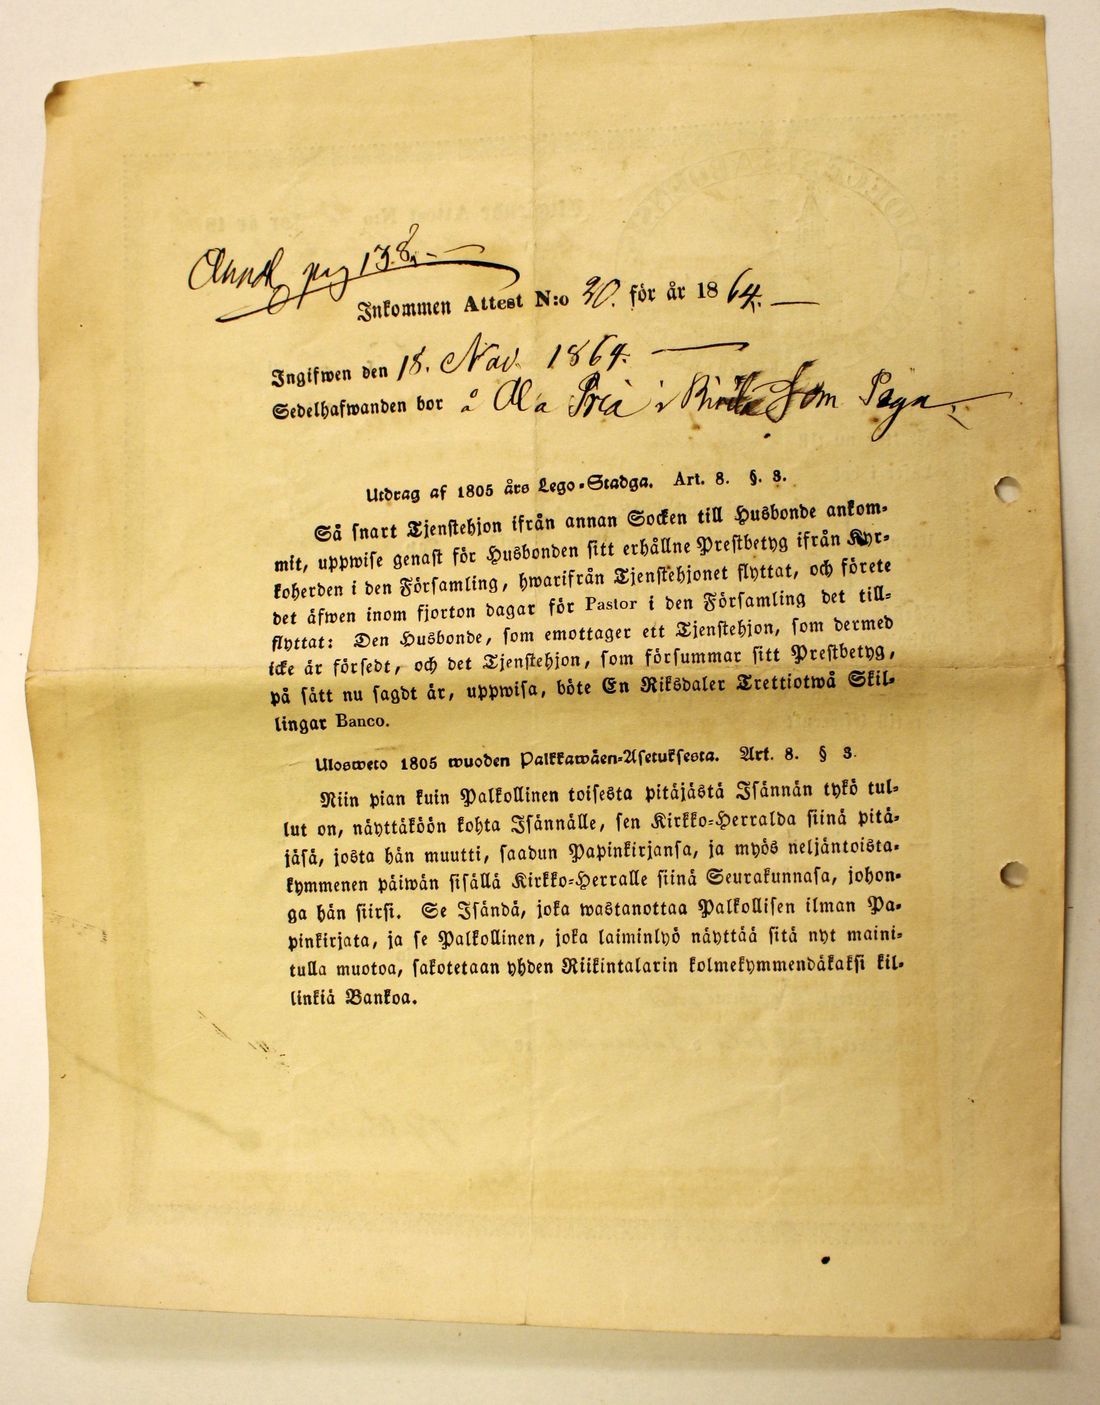 pag 138.
Inkommen Attest N:o 20. för år 1864.
Ingifwen den 18. Nov. 1864.
Sedelhafwanden bor å Ala i som
Utdrag af 1805 års Lego-Stadga. Art. 8. §. 3.
Så snart Tjenstehjon ifrån annan Socken till Husbonde ankom-
mit, uppwise genast för Husbonden sitt erhållne Prestbetyg ifrån Kyr-
koherden i den Församling, hwarifrån Tjenstehjonet flyttat, och förete
det äfwen inom fjorton dagar för Pastor i den Församling det till-
flyttat: Den Husbonde, som emottager ett Tjenstehjon, som dermed
icke är försedt, och det Tjenstehjon, som försummar sitt Prestbetyg,
på sätt nu sagdt är, uppwisa, böte En Riksdaler Trettiotwå Skil-
lingar Banco.
Ulosweto 1805 wuoden Palkkawäen-Asetuksesta. Art. 8. § 3.
Niin pian kuin Palkollinen toisesta pitäjästä Isännän tykö tul-
lut on, näyttäköön kohta Isännälle, sen Kirkko-Herralda siinä pitä-
jäsä, josta hän muutti, saadun Papinkirjansa, ja myös neljäntoista-
kymmenen päiwän sisällä Kirkko-Herralle siinä Seurakunnasa, johon-
ga hän siirsi. Se Isändä, joka wastanottaa Palkollisen ilman Pa-
pinkirjata, ja se Palkollinen, joka laiminlyö näyttää sitä nyt maini-
tulla muotoa, sakotetaan yhden Riikintalarin kolmekymmendäkaksi kil-
linkiä Bankoa.